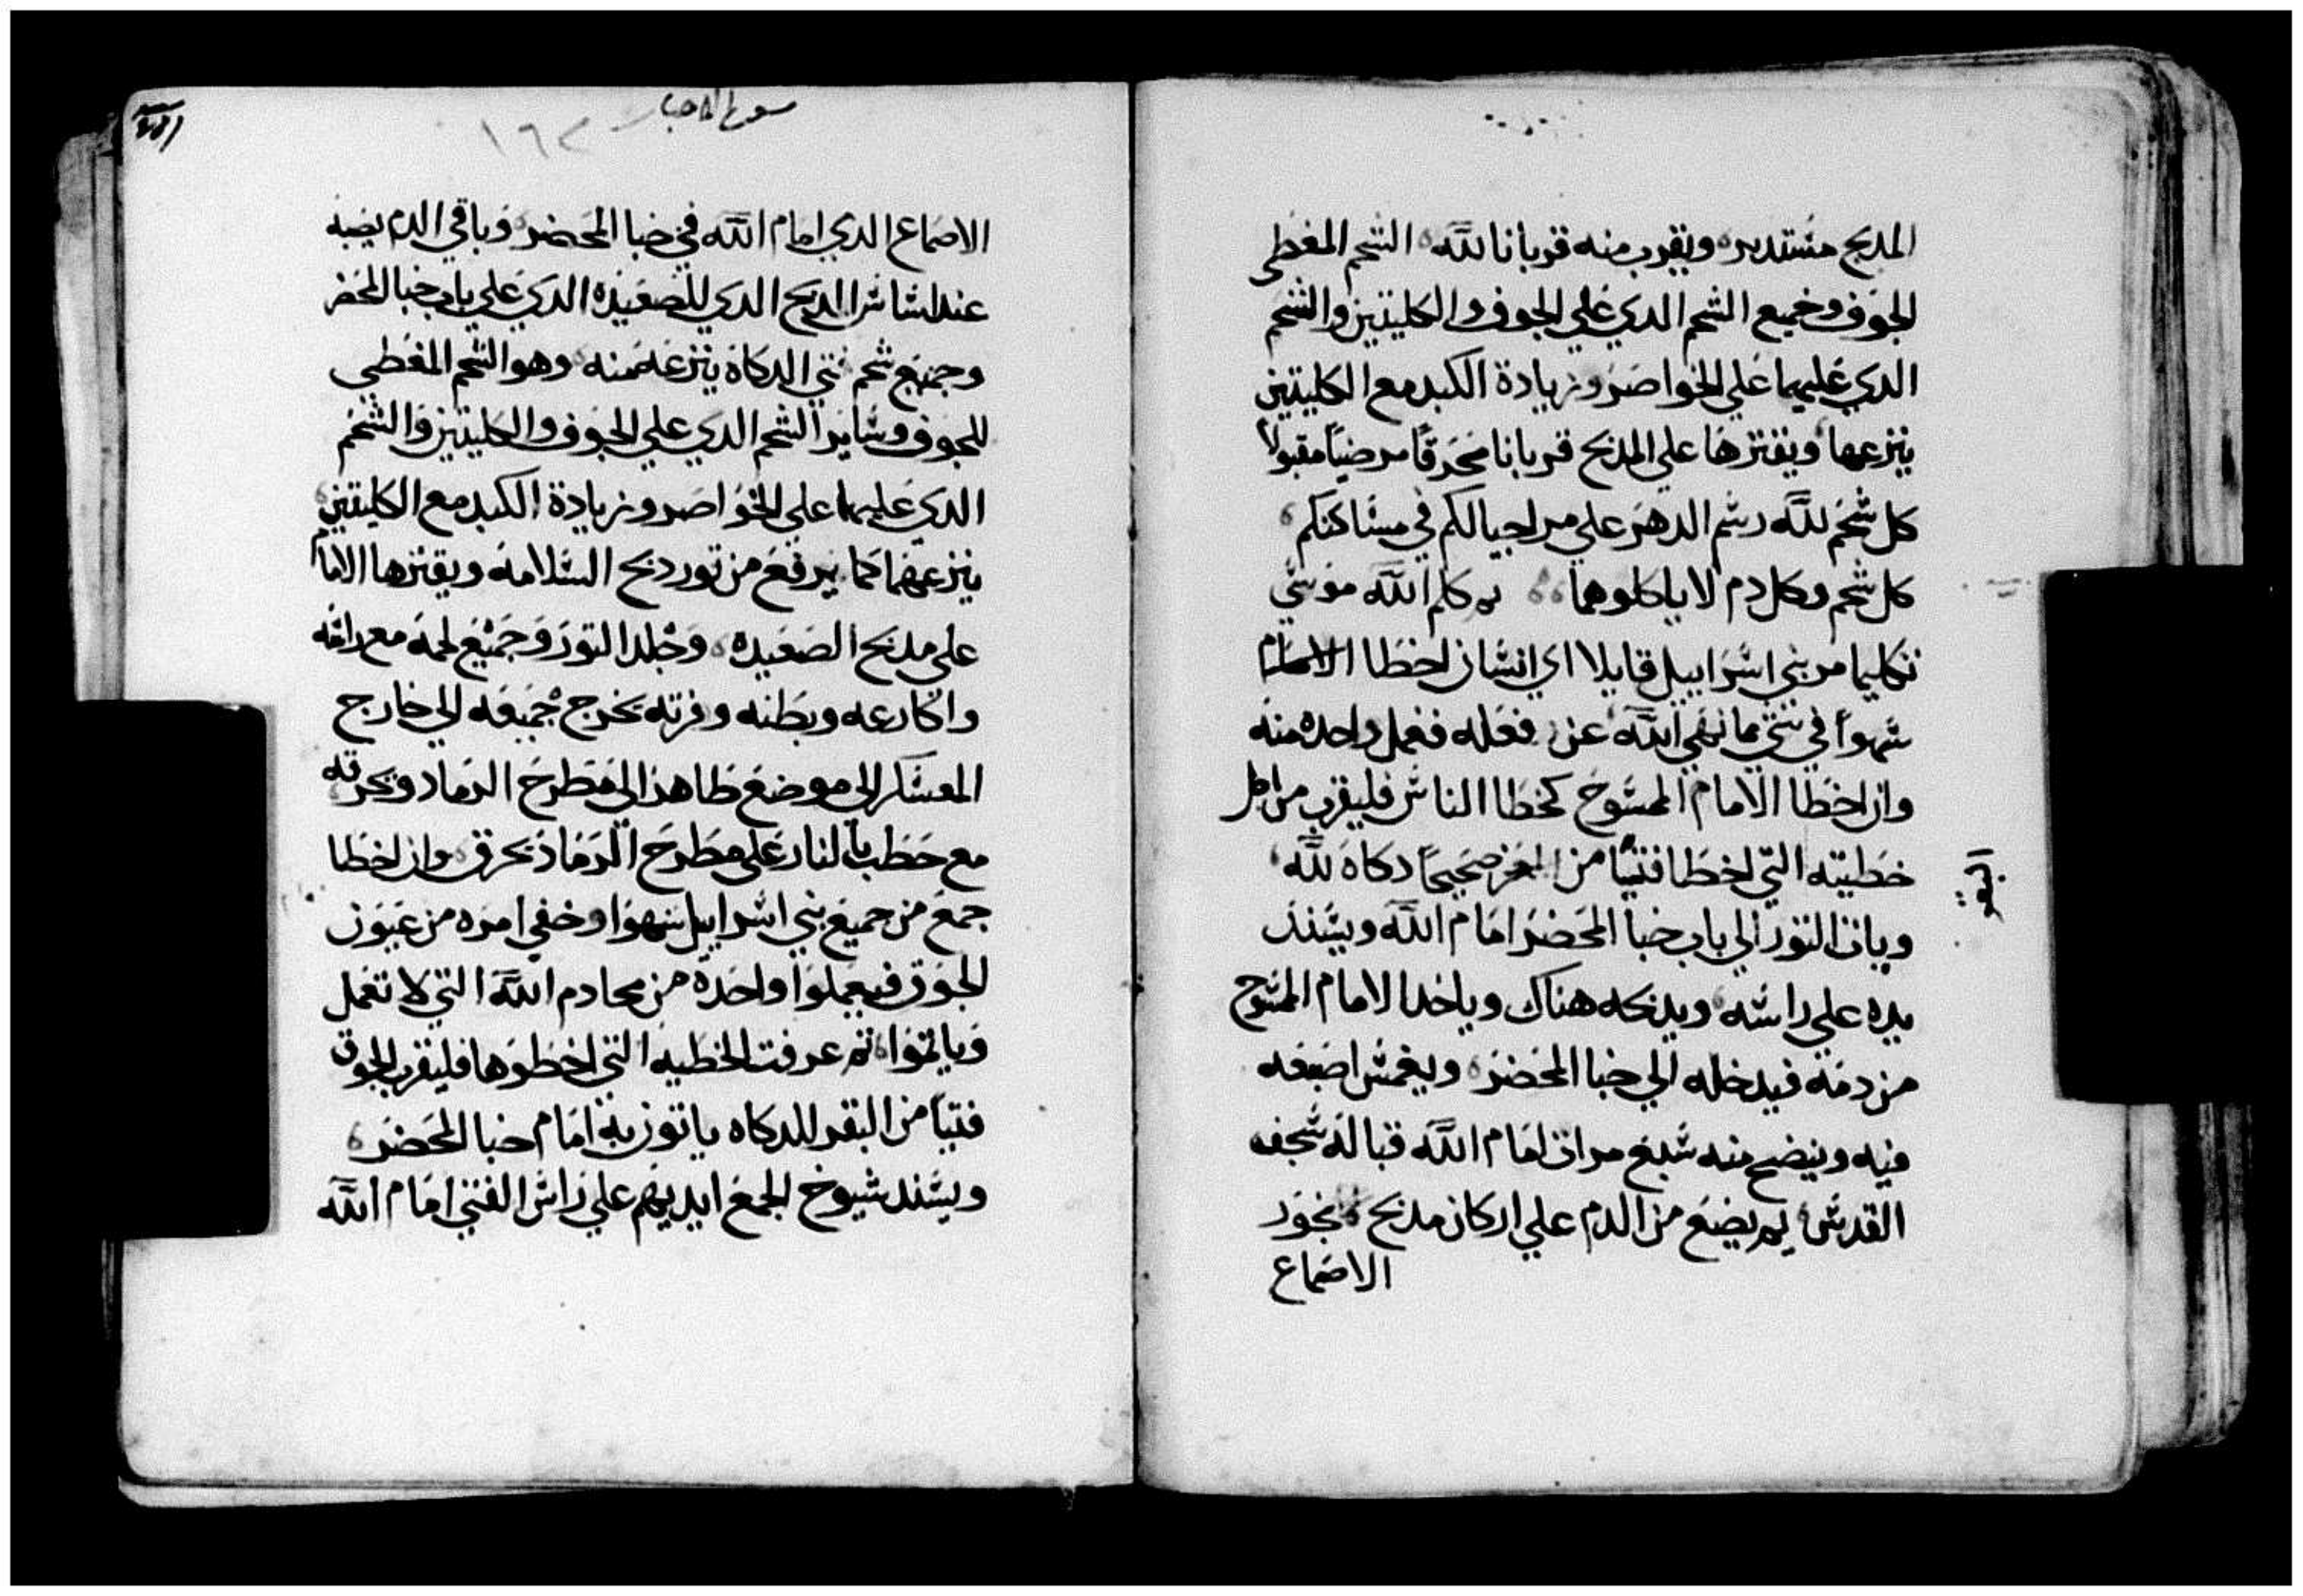 المدبح مستدير ويقرب منه قربانا لله الشحم المغطي
الجوف وجميع الشحم الدي علي الجوف والكليتين والشحم
الدي عليهما علي الخواصر وزيادة الكبد مع الكليتين
ينزعها ويقترها علي المدبح قربانا محرقا مرضيا مقبولا
كل شحم لله رسم الدهر علي مر اجيالكم في مساكنكم
كل شحم وكل دم لا ياكلوهما كلم الله موسي
تكليما مر بني اسراييل قايلا اي انسان اخطا الامام
سهوا في شي مما نهي الله عن فعله فعمل واحده منه
وان اخطا الامام الممسوح كخطا الناس فليقرب من اجل
خطيته التي اخطا فتيا من صحيحا دكاة لله
البقر
وياتي التور الي باب خبا المحضر امام الله ويسند
يده علي راسه ويدبحه هناك وياخد الامام المسوح
من دمه فيدخله الي خبا المحضر ويغمس اصبعه
فيه وينضح منه سبع مرات امام الله قبالة سجف
القدس تم يضع من الدم علي اركان مدبح بخور
الاصماع
سفر الاحبار
١٦٢
الاصماع الدي امام الله في خبا المحضر وباقي الدم يصبه
عند اساس المدبح الدي للصعيده الدي علي باب خبا المحضر
وجميع شحم تني الدكاة ينزعه منه وهو الشحم المغطي
للجوف وساير الشحم الدي علي الجوف والكليتين والشحم
الدي عليهما علي الخواصر وزيادة الكبد مع الكليتين
ينزعهما كما يرفع من تور دبح السلامه ويقترها الامام
علي مدبح الصعيده وجلد التور وجميع لحمه مع راسه
واكارعه وبطنه وفرته يخرج جميعه الي خارج
المعسكر الي موضع طاهر الي مطرح الرماد ويحرقه
مع حطب بالنار علي مطرح الرماد يحرق وان اخطا
جمع من جميع بني اسراييل سهوا وخفي امره من عيون
الجوق فيعملوا واحدة من محارم الله التي لا تعمل
وياتموا تم عرفت الخطيه التي اخطوها فليقرب الجوق
فتيا من البقر للدكاه ياتون به امام خبا المحضر
ويسند شيوخ الجمع ايديهم علي راس الفتي امام الله